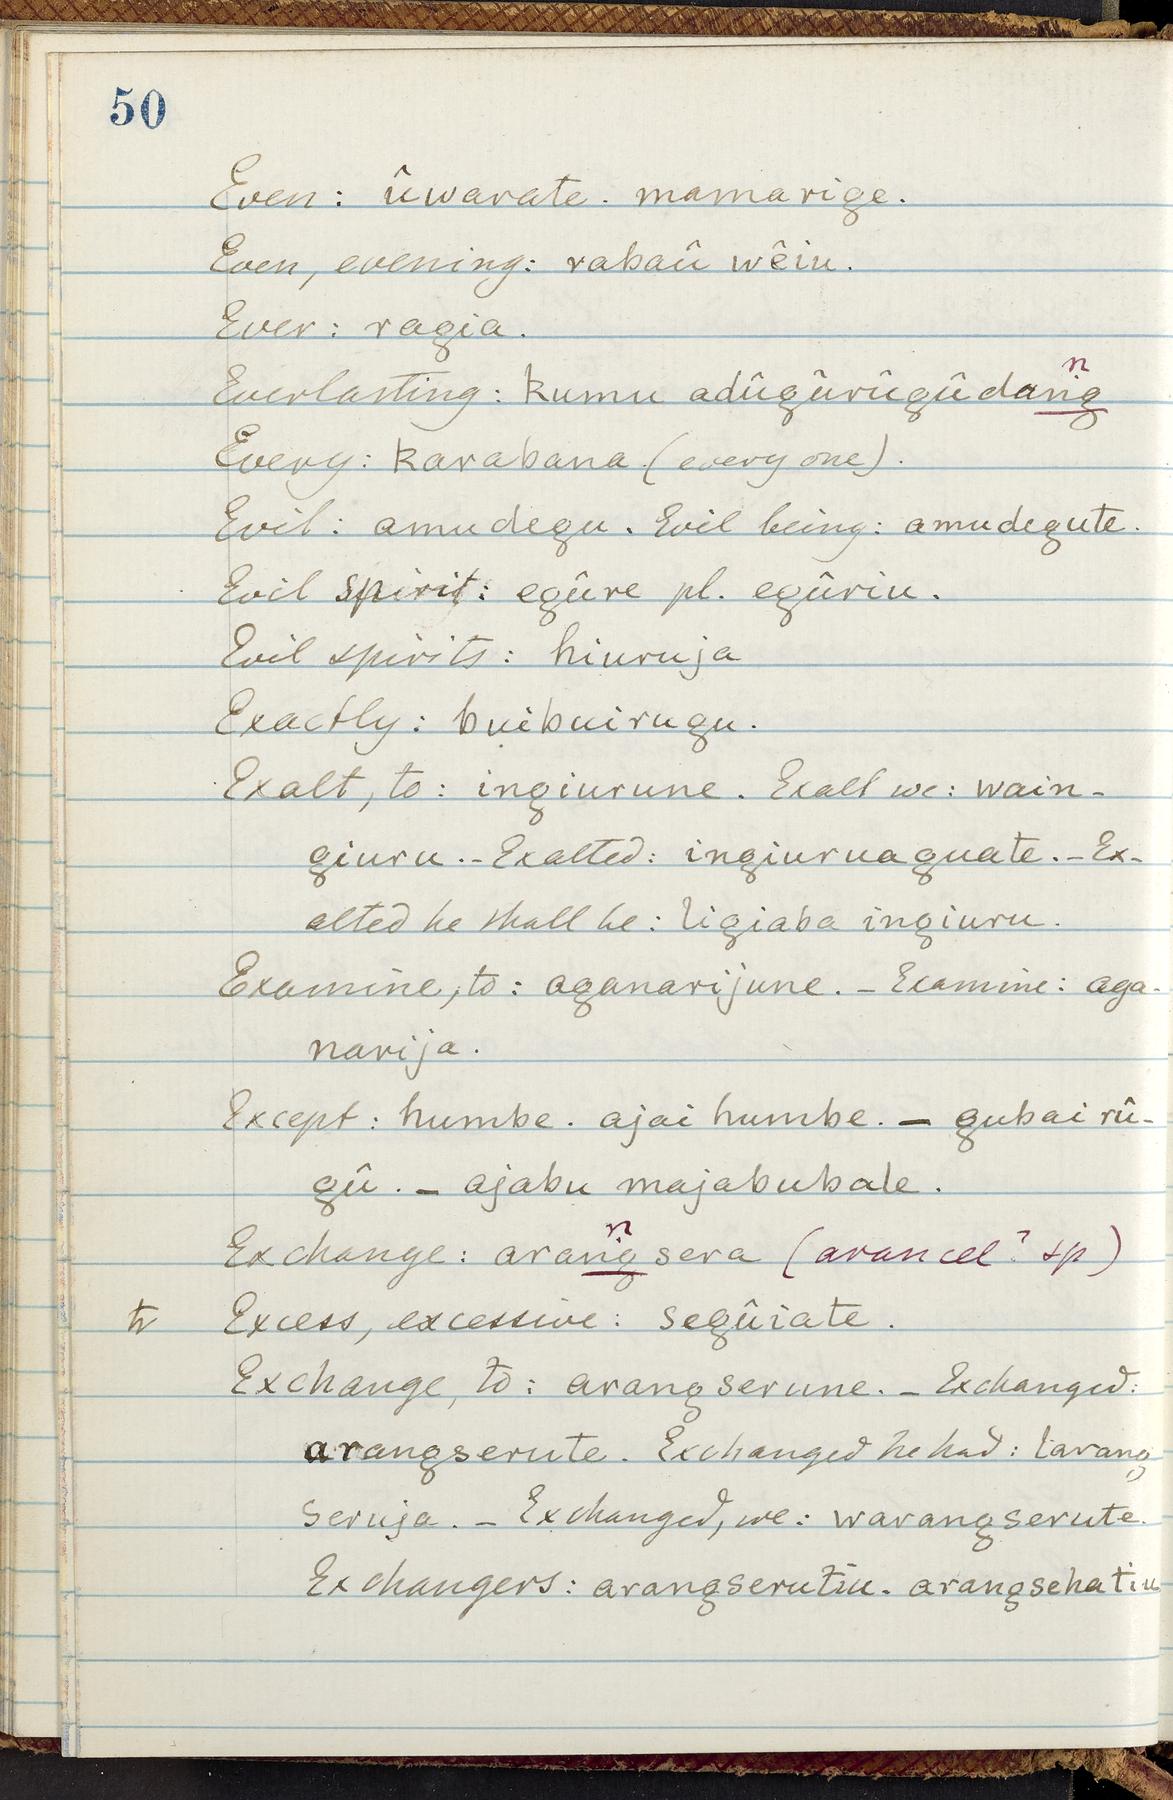 50
Even: ûwarate. mamarige.
Even, evening: rabaû wêiu.
Ever: ragia.
n
Everlasting: kumu adûgûrûgûdang
Every: karabana (every one).
Evil: amudegu. Evil being: amudegute.
Evil spirit: egûre pl. egûriu.
Evil spirits: hiuruja
Exactly: buibuirugu.
Exalt, to: ingiurune. Exalt we: wain-
giuru. - Exalted: ingiuruaguate. - Ex-
alted he shall be: ligiaba ingiuru.
Examine, to: aganarijune. - Examine: aga-
narija.
Except: humbe. ajai humbe. - gubai rû-
gû. - ajabu majabubale.
n
Exchange: arangsera (arancel? sp)
tr Excess, excessive: segûiate.
Exchange, to: arangserune. - Exchanged:
arangserute. Exchanged he had: larang
seruja. - Exchanged, we: warangserute.
Exchangers: arangserutiu. arangsehatiu